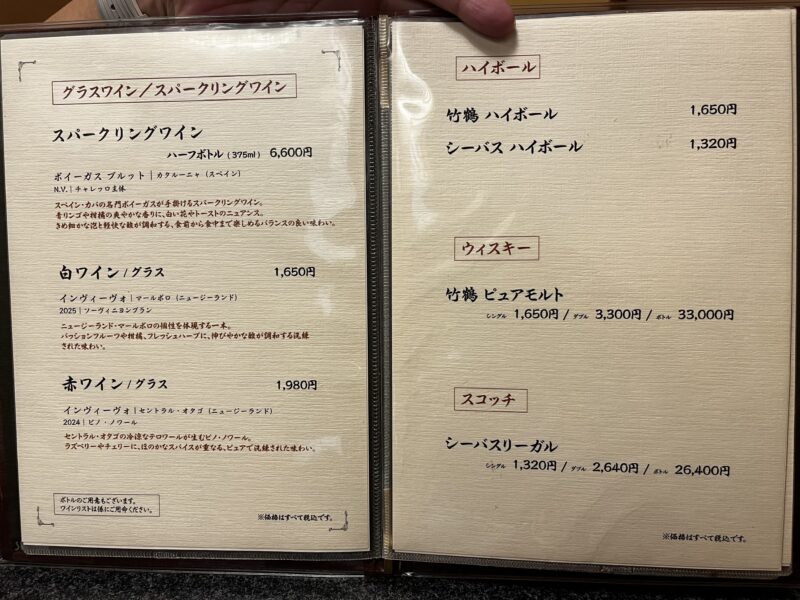 グラスワイン/スパークリングワイン
スパークリングワイン
ハーフボトル (375ml) 6,600円
ボイーガス ブルット | カタルーニャ (スペイン)
N.V. | チャレッロ主体
スペイン・カバの名門ボイーガスが手掛けるスパークリングワイン。
青リンゴや柑橘の爽やかな香りに、白い花やトーストのニュアンス。
きめ細かな泡と軽快な酸が調和する、食前から食中まで楽しめるバランスの良い味わい。
白ワイン / グラス 1,650円
インヴィーヴォ | マールボロ (ニュージーランド)
2025 | ソーヴィニヨンブラン
ニュージーランド・マールボロの個性を体現する一本。
パッションフルーツや柑橘、フレッシュハーブに、伸びやかな酸が調和する洗練
された味わい。
赤ワイン / グラス 1,980円
インヴィーヴォ | セントラル・オタゴ (ニュージーランド)
2024 | ピノ・ノワール
セントラル・オタゴの冷涼なテロワールが生むピノ・ノワール。
ラズベリーやチェリーに、ほのかなスパイスが重なる、ピュアで洗練された味わい。
ボトルのご用意もございます。
ワインリストは係にご用命ください。
※価格はすべて税込です。
ハイボール
竹鶴 ハイボール 1,650円
シーバス ハイボール 1,320円
ウィスキー
竹鶴 ピュアモルト
シングル 1,650円 / ダブル 3,300円 / ボトル 33,000円
スコッチ
シーバスリーガル
シングル 1,320円 / ダブル 2,640円 / ボトル 26,400円
※価格はすべて税込です。